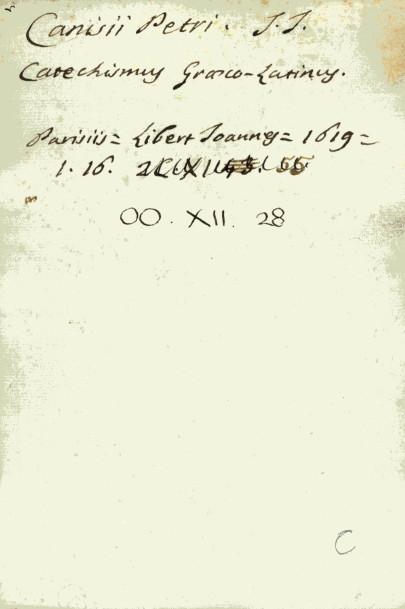 Canisii Petri. S.J.
Catechismus Græco-Latinus.
Parisiis = Libert Joannes = 1619 =
1. 16.
OO. XII. 28
C